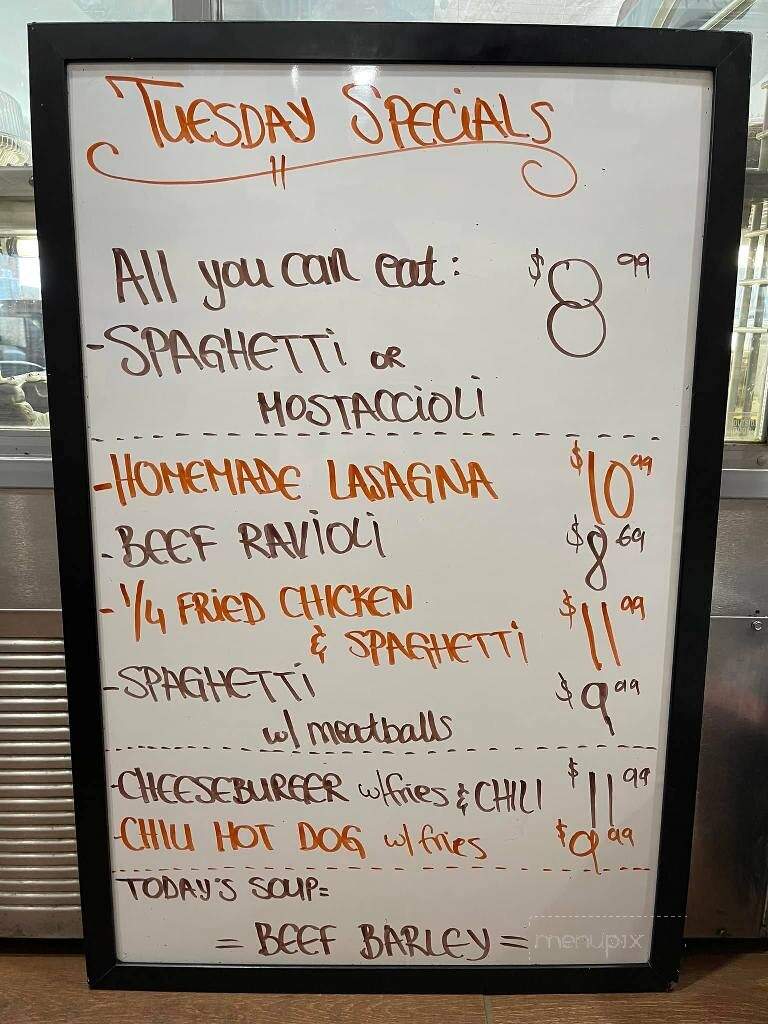 TUESDAY SPECIALS
All you can eat: $8.99
- SPAGHETTi OR
MOSTACCiOLi
- HOMEMADE LASAGNA $10.99
- BEEF RAViOLi $8.69
- 1/4 FRiED CHiCKEN
& SPAGHETTi $11.99
- SPAGHETTi $9.99
w/ meatballs
- CHEESEBURGER w/fries & CHiLi $11.99
- CHiLi HOT DOG w/ fries $9.99
TODAY'S SOUP=
= BEEF BARLEY =
menupix